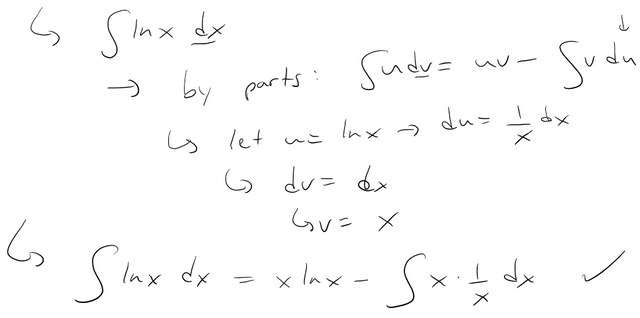 ↳ ∫ ln x dx
→ by parts: ∫ u dv = uv - ∫ v du ↓
↳ let u = ln x → du = 1/x dx
↳ dv = dx
↳ v = x
↳ ∫ ln x dx = x ln x - ∫ x · 1/x dx ✓